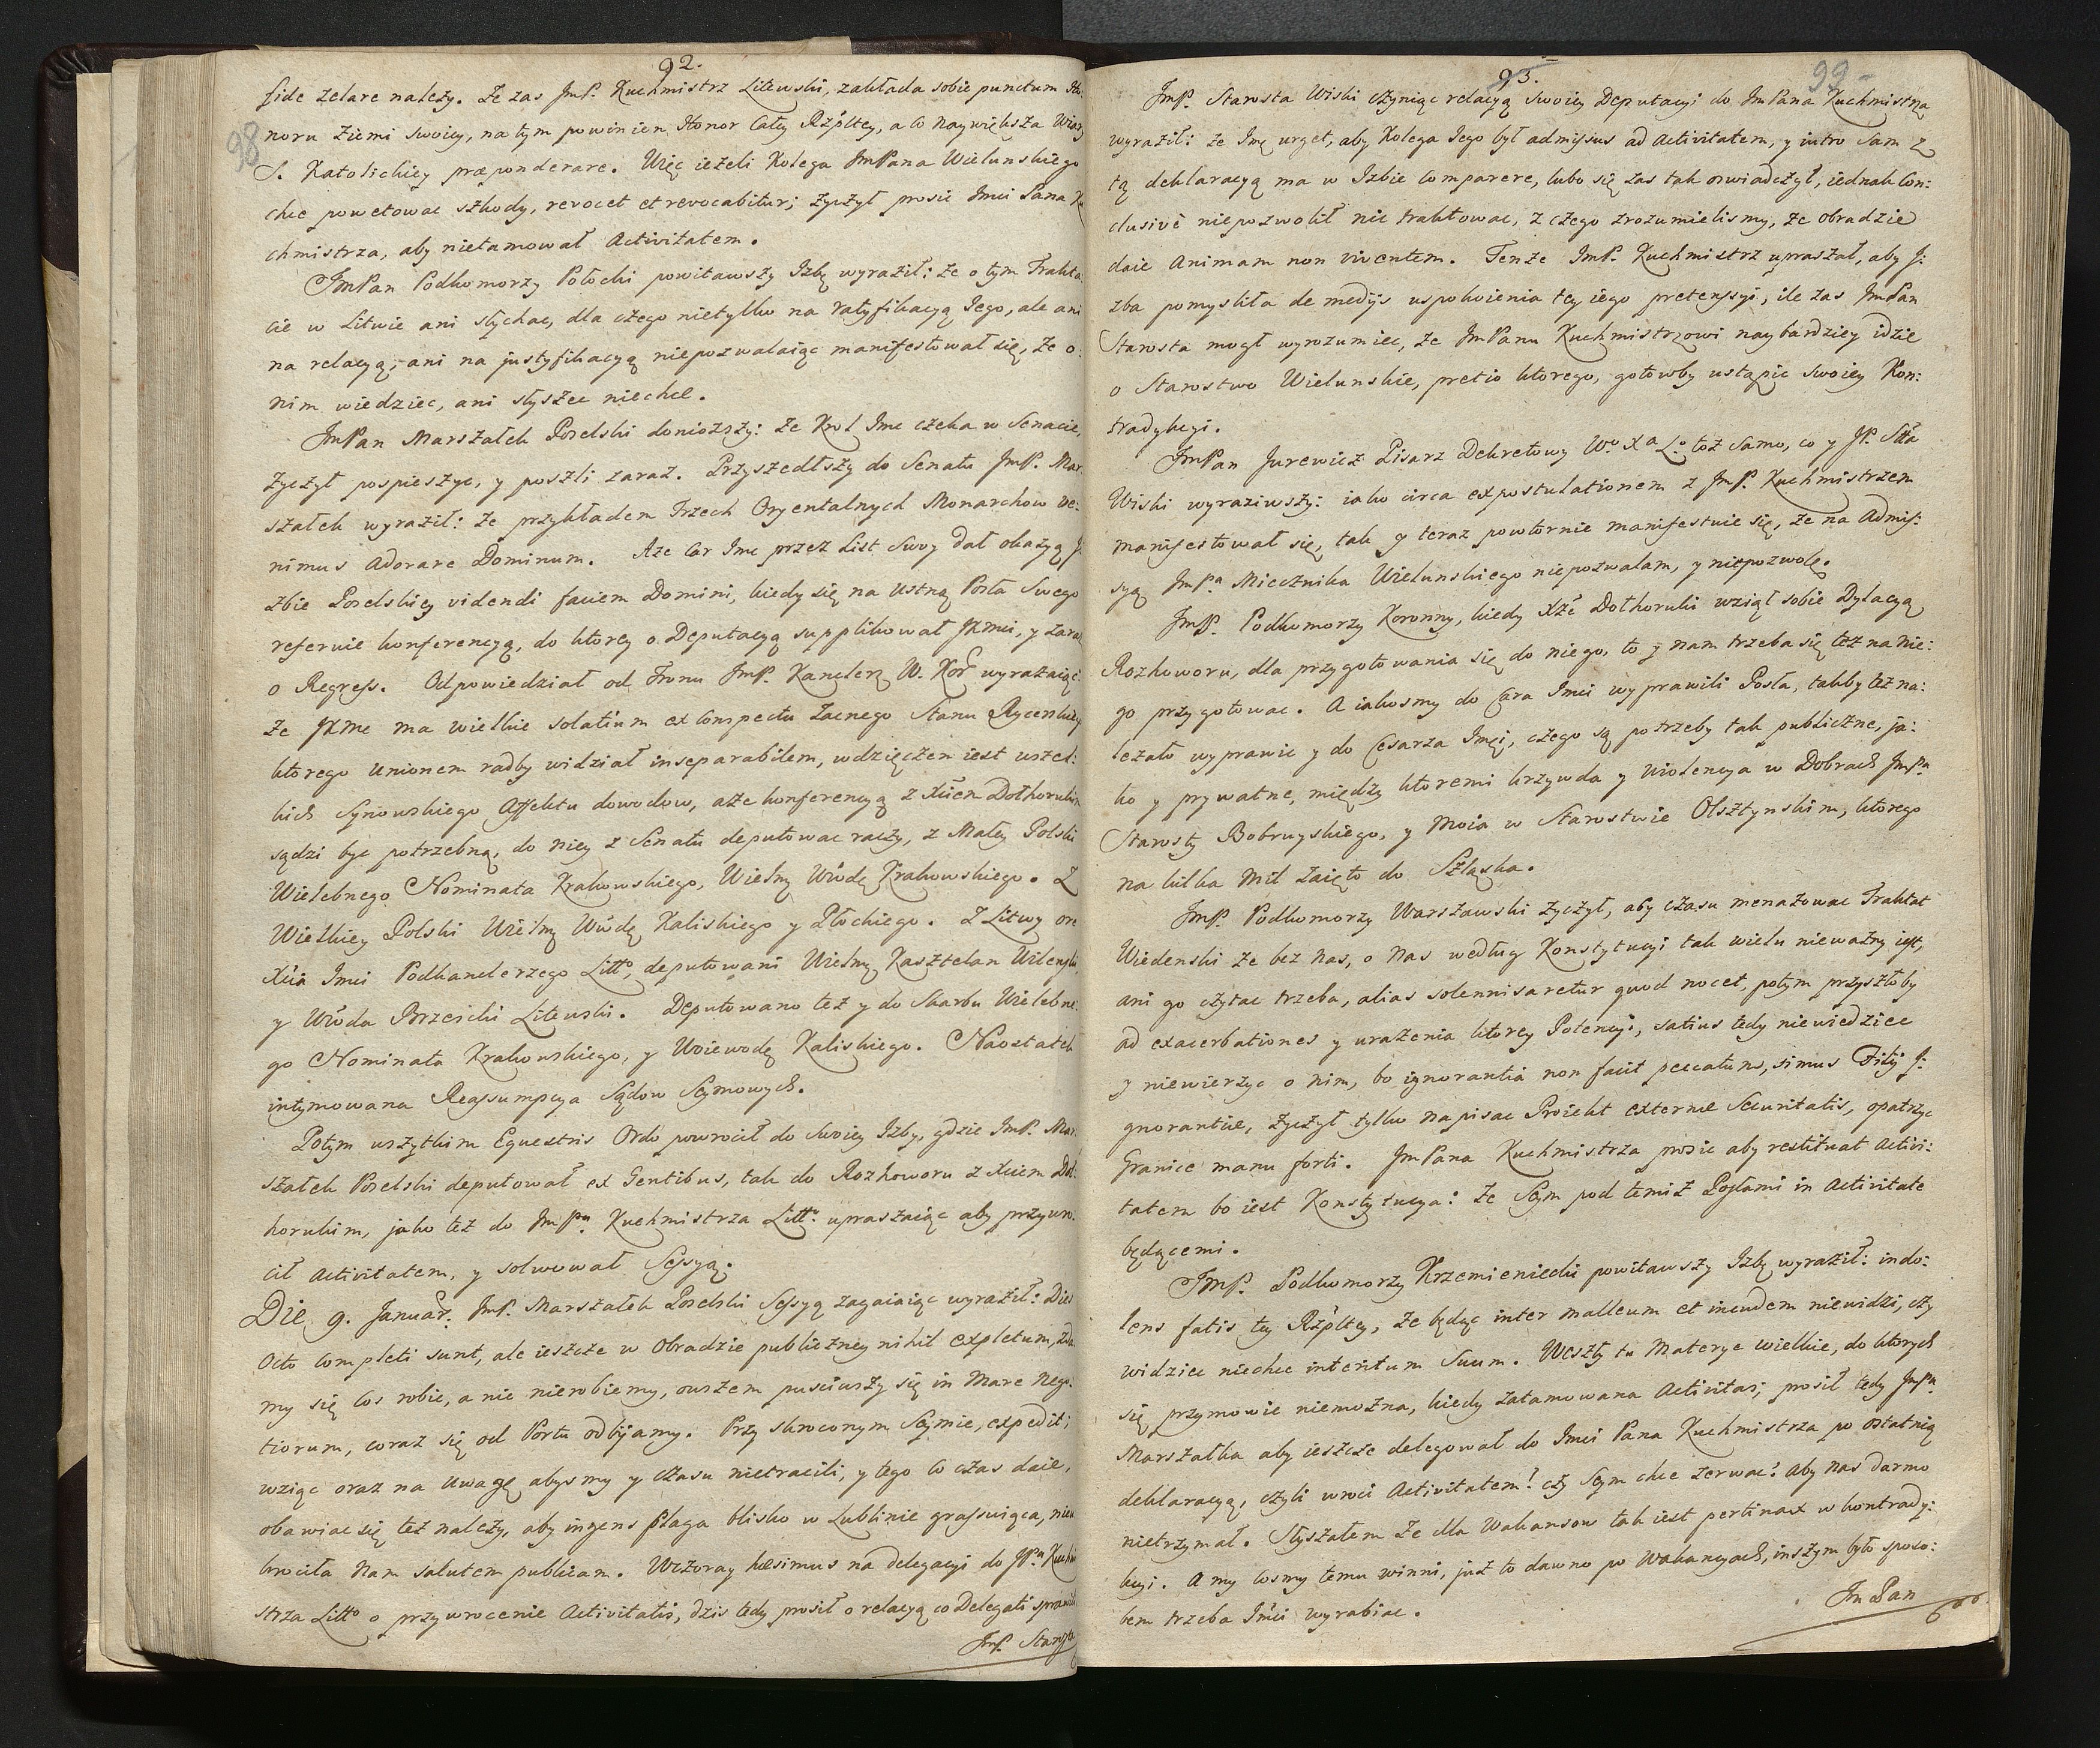 92.
98
fide zelare należy. Ze zas JmP. Kuchmistrz Litewski, zakłada sobie punctum Ho-
noru Ziemi Swoiey, na tym powinien Honor Całey Rzpltey, a co naywiększa Wiary
S. Katolickiey præponderare. Więc ieżeli Kolega JmPana Wielunskiego
chce powetowac szkody, revocet et revocabitur; życzył prosic Imci Pana Ku
chmistrza, aby nietamował Activitatem.
JmPan Podkomorzy Połocki powitawszy Izbę wyraził: że o tym Trakta-
cie w Litwie ani słychac, dla czego nietylko na ratyfikacyą Jego, ale ani
na relacyą, ani na justyfikacyą niepozwalaiąc manifestował się, że o
nim wiedziec, ani słyszec niechce.
JmPan Marszałek Poselski doniozszy: że Krol Jmc czeka w Senacie,
życzył pospieszyc, y poszli zaraz. Przyszedłszy do Senatu JmP. Mar
szałek wyraził: że przykładem Trzech Oryentalnych Monarchow ve:
nimus adorare Dominum. Aże Car Jmc przez List Swoy dał okazyą J
zbie Poselskiey videndi faciem Domini, kiedy się na ustną Posła Swego
referuie konferencyą, do ktorey o Deputacyą supplikował JKmci, y zaraz
o Regress. Odpowiedział od Tronu JmP. Kanclerz W. Kor wyrażaiąc:
że JKMc ma wielkie solatium ex Conspectu Zacnego Stanu Rycerskiey
ktorego Unionem radby widział inseparabilem, wdzięczen iest wszel:
kich Synowskiego Affektu dowodow, aże konferencyą z Xciem Dołhorukim
sądzi byc potrzebną, do niey z Senatu deputowac raczy, z Małey Polski
Wielebnego Nominata Krakowskiego, Wielmę Wdę Krakowskiego. Z
Wielkiey Polski Wielmę Wdę Kaliskiego y Płockiego. Z Litwy ore
Xcia Imci Podkanclerzego Litto, deputowani Wielmę Kasztelan Wilenski,
y Wda Brzescki Litewski. Deputowano też y do Skarbu Wielebne:
go Nominata Krakowskiego, y Woiewodę Kaliskiego. Naostatek
intymowana Reassumpcya Sądow Seymowych.
Potym wszytkim Equestris Ordo powrocił do Swoiey Izby, gdzie JmP. Mar
szałek Poselski deputował ex Gentibus, tak do Rozhoworu z Xciem Doł:
horukim, jako też do JmPa Kuchmistrza Litto upraszaiąc aby przywro:
cił Activitatem, y solwował Sessyą.
Die 9. Januar. JmP. Marszałek Poselski Sessyą zagaiaiąc wyraził: Dies
Octo Completi sunt, ale ieszcze w Obradzie publiczney nihil expletum, zda
my się Cos robic, a nic nierobiemy, owszem pusciwszy się in Mare Nego-
tiorum, coraz się od Portu odbijamy. Przy skroconym Seymie, expedit;
wziąc oraz na uwagę abysmy y czasu nietracili, y tego co czas daie,
obawiac się też należy, aby ingens plaga blisko w Lublinie grassuiąca, nieu
krociła Nam salutem publicam. Wczoray hæsimus na delegacyi do JPa Kuchmi
strza Litto o przywrocenie Activitatis, dzis tedy prosił o relacyą co Delegati sprawili
JmP. Starosta
93.
99
JmP. Starosta Wiski czyniąc relacyą Swoiey Deputacyi do JmPana Kuchmistrza
wyraził: że Jmc urget, aby Kolega Jego był admissus ad Activitatem, y jutro Sam z
tą deklaracyą ma w Izbie Comparere, lubo się zas tak oswiadczył, iednak Con:
clusivè niepozwolił nic traktowac, z czego zrozumielismy, że obradzie
daie Animam non viventem. Tenże JmP. Kuchmistrz upraszał, aby J:
zba pomysliła de medijs uspokoienia tey iego pretensyi, ile zas JmPan
Starosta mogł wyrozumiec, że JmPanu Kuchmistrzowi naybardziey idzie
o Starostwo Wielunskie, pretio ktorego, gotowby ustąpic Swoiey Kon:
tradykcyi.
JmPan Jurewicz Pisarz Dekretowy Wo Xa Lo toż samo, co y JP. Stta
Wiski wyraziwszy: iako circa expostulationem z JmP. Kuchmistrzem
manifestował się, tak y teraz powtornie manifestuie się, że na Admis:
syą JmPa Miecznika Wielunskiego niepozwalam, y niepozwolę.
JmP. Podkomorzy Koronny, kiedy Xże Dołhoruki wziął sobie Dylacyą
Rozhoworu, dla przygotowania się do niego, to y nam trzeba się też na nie:
go przygotowac. A iakosmy do Cara Imci wyprawili Posła, takby też na:
leżało wyprawic y do Cesarza Imci, czego są potrzeby tak publiczne, ja:
ko y prywatne, między ktoremi krzywda y Violencya w Dobrach JmPa
Starosty Bobruyskiego, y Moia w Starostwie Olsztynskim, ktorego
na kilka Mil Zaięto do Szląska.
JmP. Podkomorzy Warszawski życzył, aby czasu menażowac Traktat
Wiedenski że bez Nas, o Nas według Konstytucyi tak wielu nieważny iest,
ani go czytac trzeba, alias solennisaretur quod nocet, potym przyszłoby
ad exacerbationes y urażenia ktorey Potencyi, satius tedy niewiedziec
y niewierzyc o nim, bo ignorantia non facit peccatum, simus Filij J:
gnorantiæ, życzył tylko napisac Proiekt externæ Securitatis, opatrzyc
Granice manu forti. JmPana Kuchmistrza prosic aby restituat Activi:
tatem bo iest Konstytucya: że Seym pod temiż Posłami in Activitate
będącemi.
JmP. Podkomorzy Krzemieniecki powitawszy Izbę wyraził: indo:
lens fatis tey Rzpltey, że będąc inter malleum et incudem niewidzi, czy
widziec niechce interitum Suum. Weszły tu Materye wielkie, do ktorych
się przymowic niemożna, kiedy zatamowana Activitas; prosił tedy JmPa
Marszałka aby ieszcze delegował do Imci Pana Kuchmistrza po ostatnią
deklaracyą, czyli wroci Activitatem? czy Seym chce zerwac? aby nas darmo
nietrzymał. Słyszałem że dla Wakansow tak iest pertinax w kontrady:
kcyi. A my Cosmy temu winni, już to dawno po Wakancyach, inszym było sposo:
bem trzeba Imci wyrabiac.
JmPan